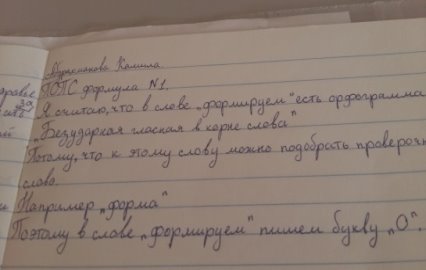 Нурманова Камила.
ПОПС формула N1.
Я считаю, что в слове „формируем" есть орфограмма
„Безударная гласная в корне слова"
Потому, что к этому слову можно подобрать провероч
слово.
Например „форма"
Поэтому в слове „формируем" пишем букву „О".